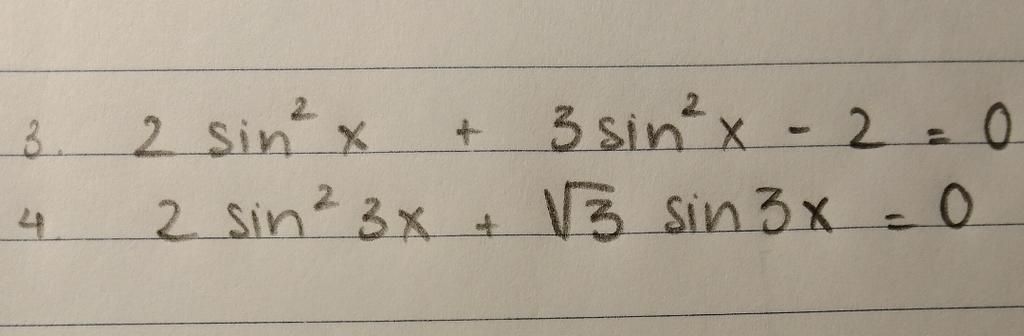 3. 2 sin² x + 3 sin² x - 2 = 0
4. 2 sin² 3x + √3 sin 3x = 0